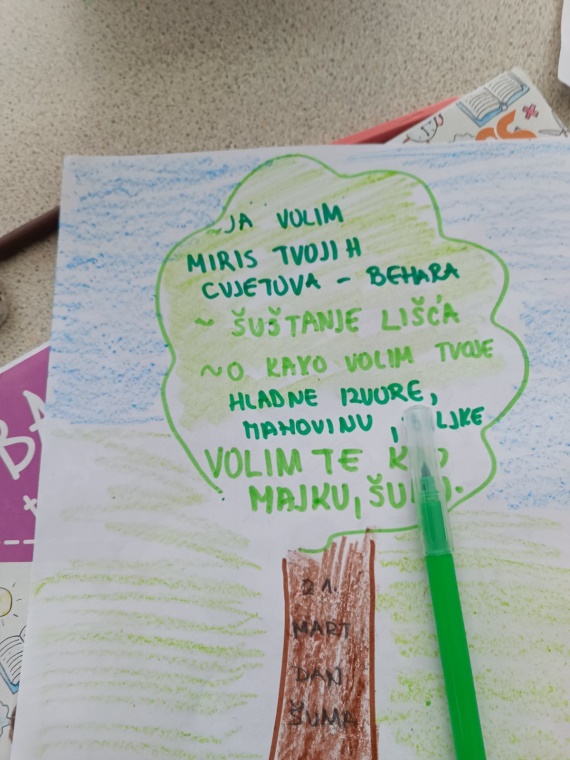 ~JA VOLIM
MIRIS TVOJIH
CVJETOVA - BEHARA
~ ŠUŠTANJE LIŠĆA
~O KAKO VOLIM TVOJE
HLADNE IZVORE,
MAHOVINU ,
VOLIM TE
MAJKU,
21.
MART
DAN
ŠUMA
BA